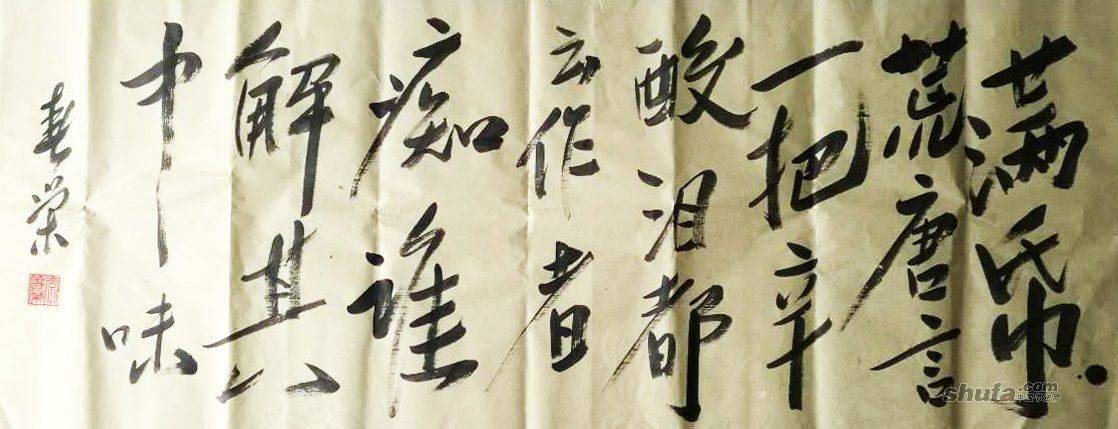 满帋
荒唐言
一把辛
酸泪都
云作者
痴谁
解其
中味
春荣
shufa.com